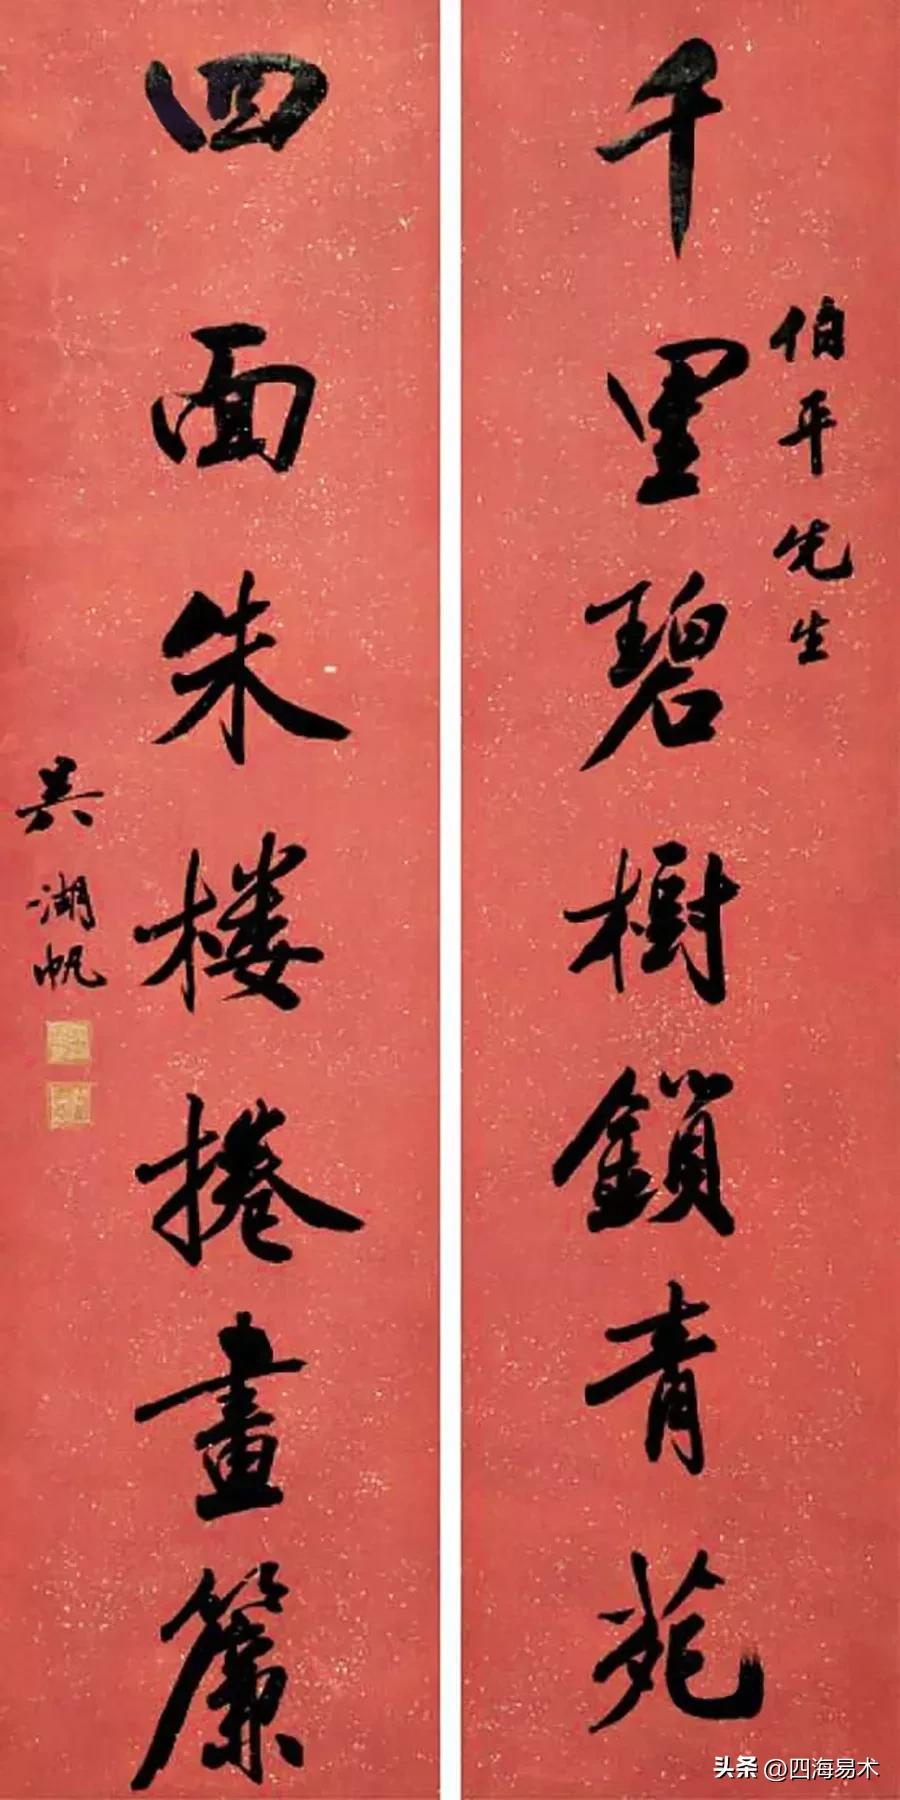 伯平先生
千里碧樹鎖青苑
四面朱楼捲畫簾
吴湖帆
头条 @四海易术